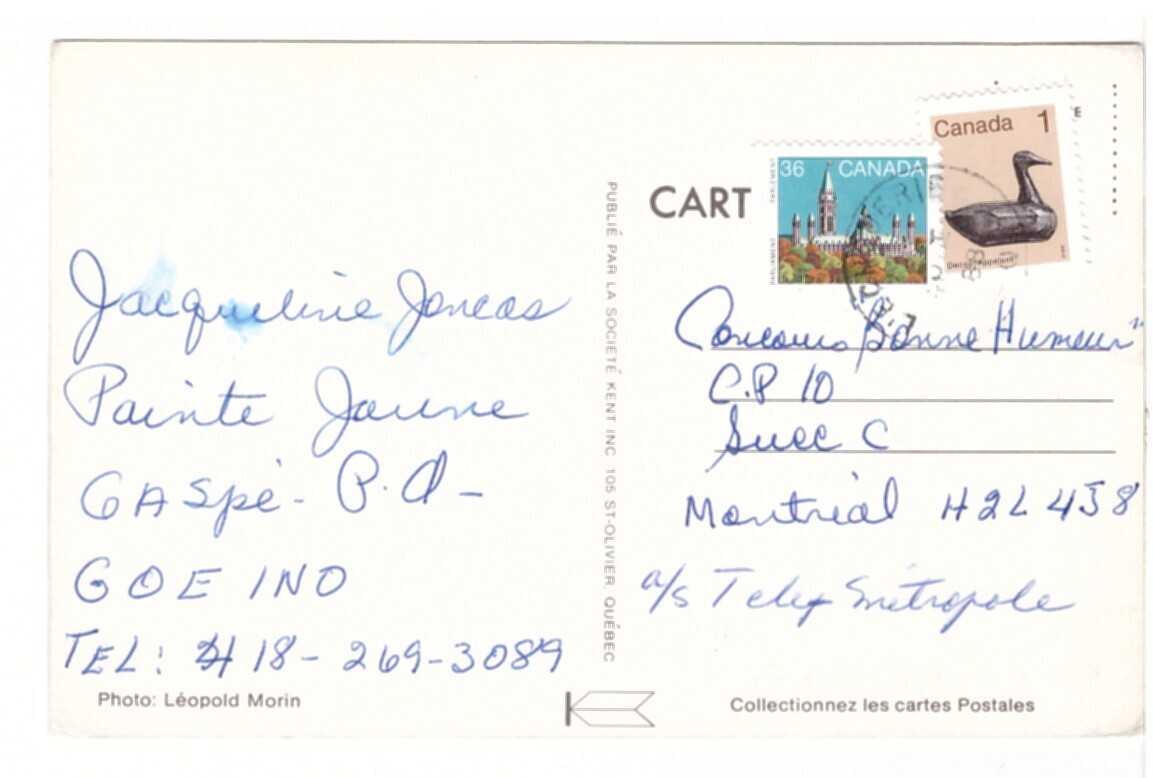 Jacqueline Joncas
Pointe Jaune
GASpé - P.Q -
GOE 1NO
TEL: 418 - 269-3089
Photo: Léopold Morin
PUBLIÉ PAR LA SOCIÉTÉ KENT INC 105 ST-OLIVIER, QUÉBEC
CART
E
36 CANADA
Canada 1
Concours "Bonne Humeur"
C.P 10
Succ C
Montréal H2L 4J8
a/s Télé-Métropole
Collectionnez les cartes Postales